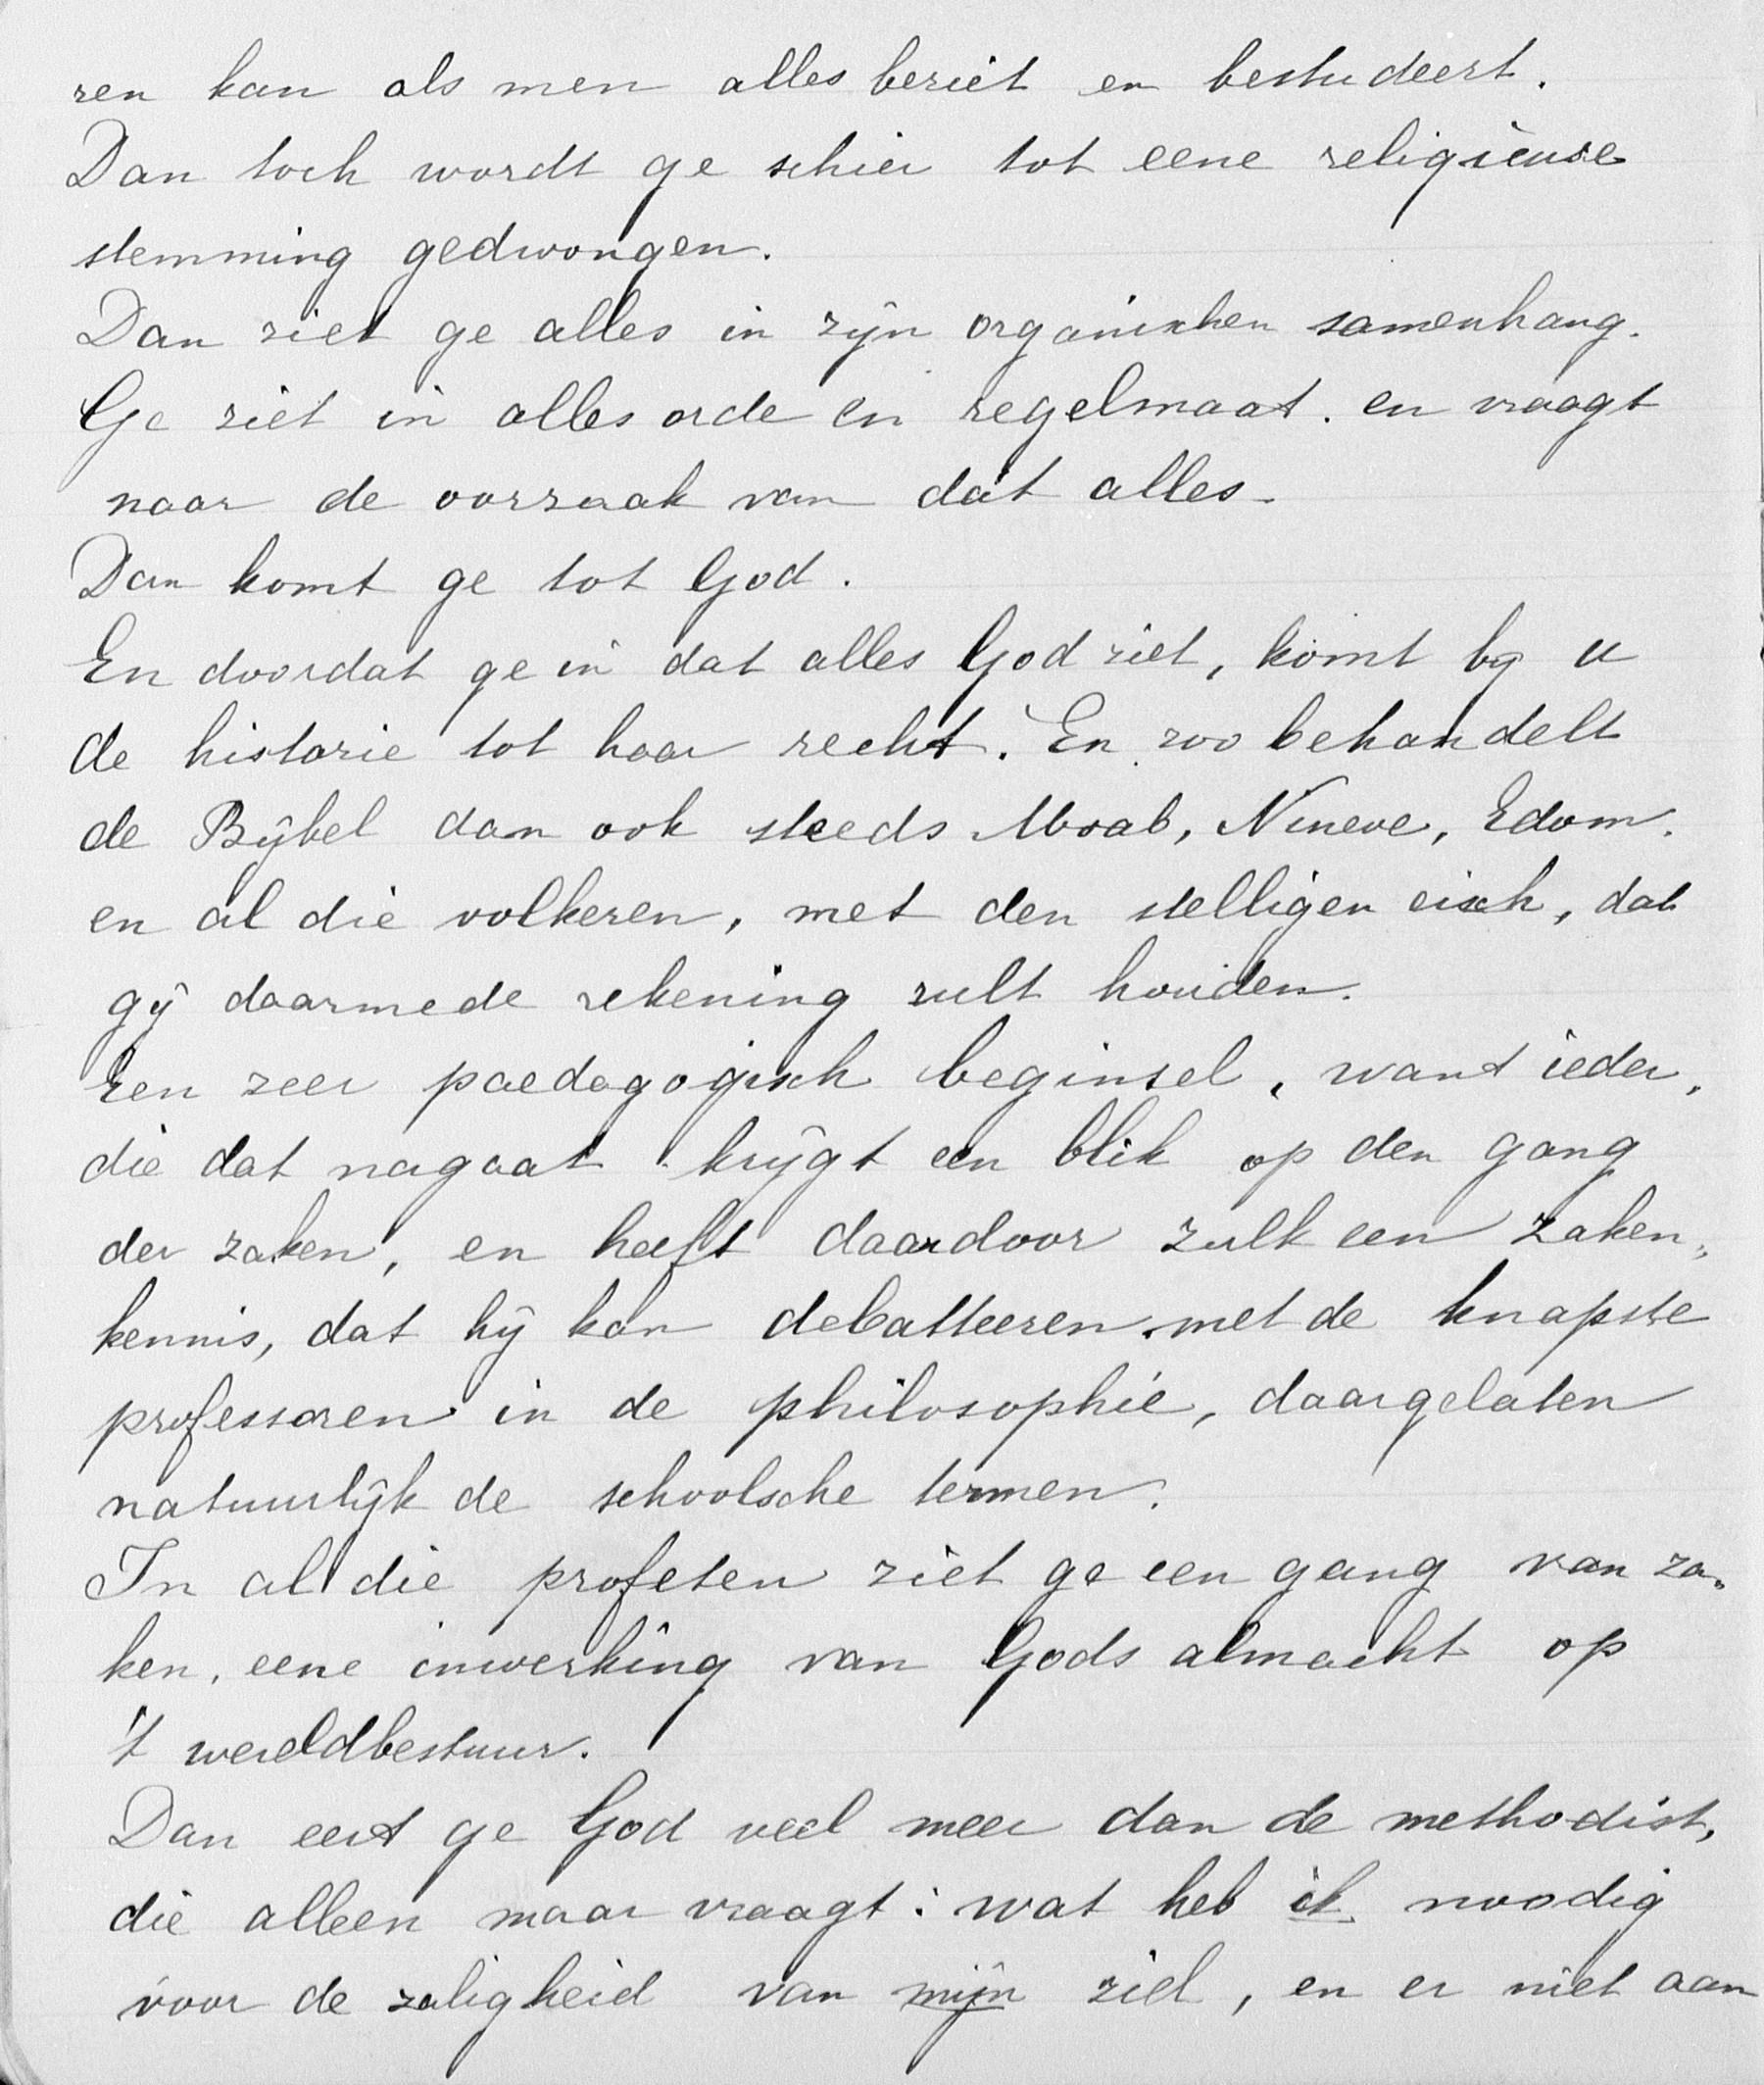 ren kan als men alles beziet en bestudeert.
Dan toch wordt ge schier tot eene religieuse
stemming gedwongen.
Dan ziet ge alles in zijn organischen samenhang.
Ge ziet in alles orde en regelmaat. en vraagt
naar de oorzaak van dat alles.
Dan komt ge tot God.
En doordat ge in dat alles God ziet, komt bij u
de historie tot haar recht. En zoo behandelt
de Bijbel dan ook steeds Moab, Nineve, Edom.
en al die volkeren, met den stelligen eisch, dat
gij daarmede rekening zult houden.
Een zeer paedagogisch beginsel, want ieder,
die dat nagaat krijgt een blik op den gang
der zaken, en heeft daardoor zulk een zaken„
kennis, dat hij kan debatteeren met de knapste
professoren in de philosophie, daargelaten
natuurlijk de schoolsche termen.
In al die profeten ziet ge een gang van za„
ken, eene inwerking van Gods almacht op
't wereldbestuur.
Dan eert ge God veel meer dan de methodist,
die alleen maar vraagt: wat heb ik noodig
voor de zaligheid van mijn ziel, en er niet aan